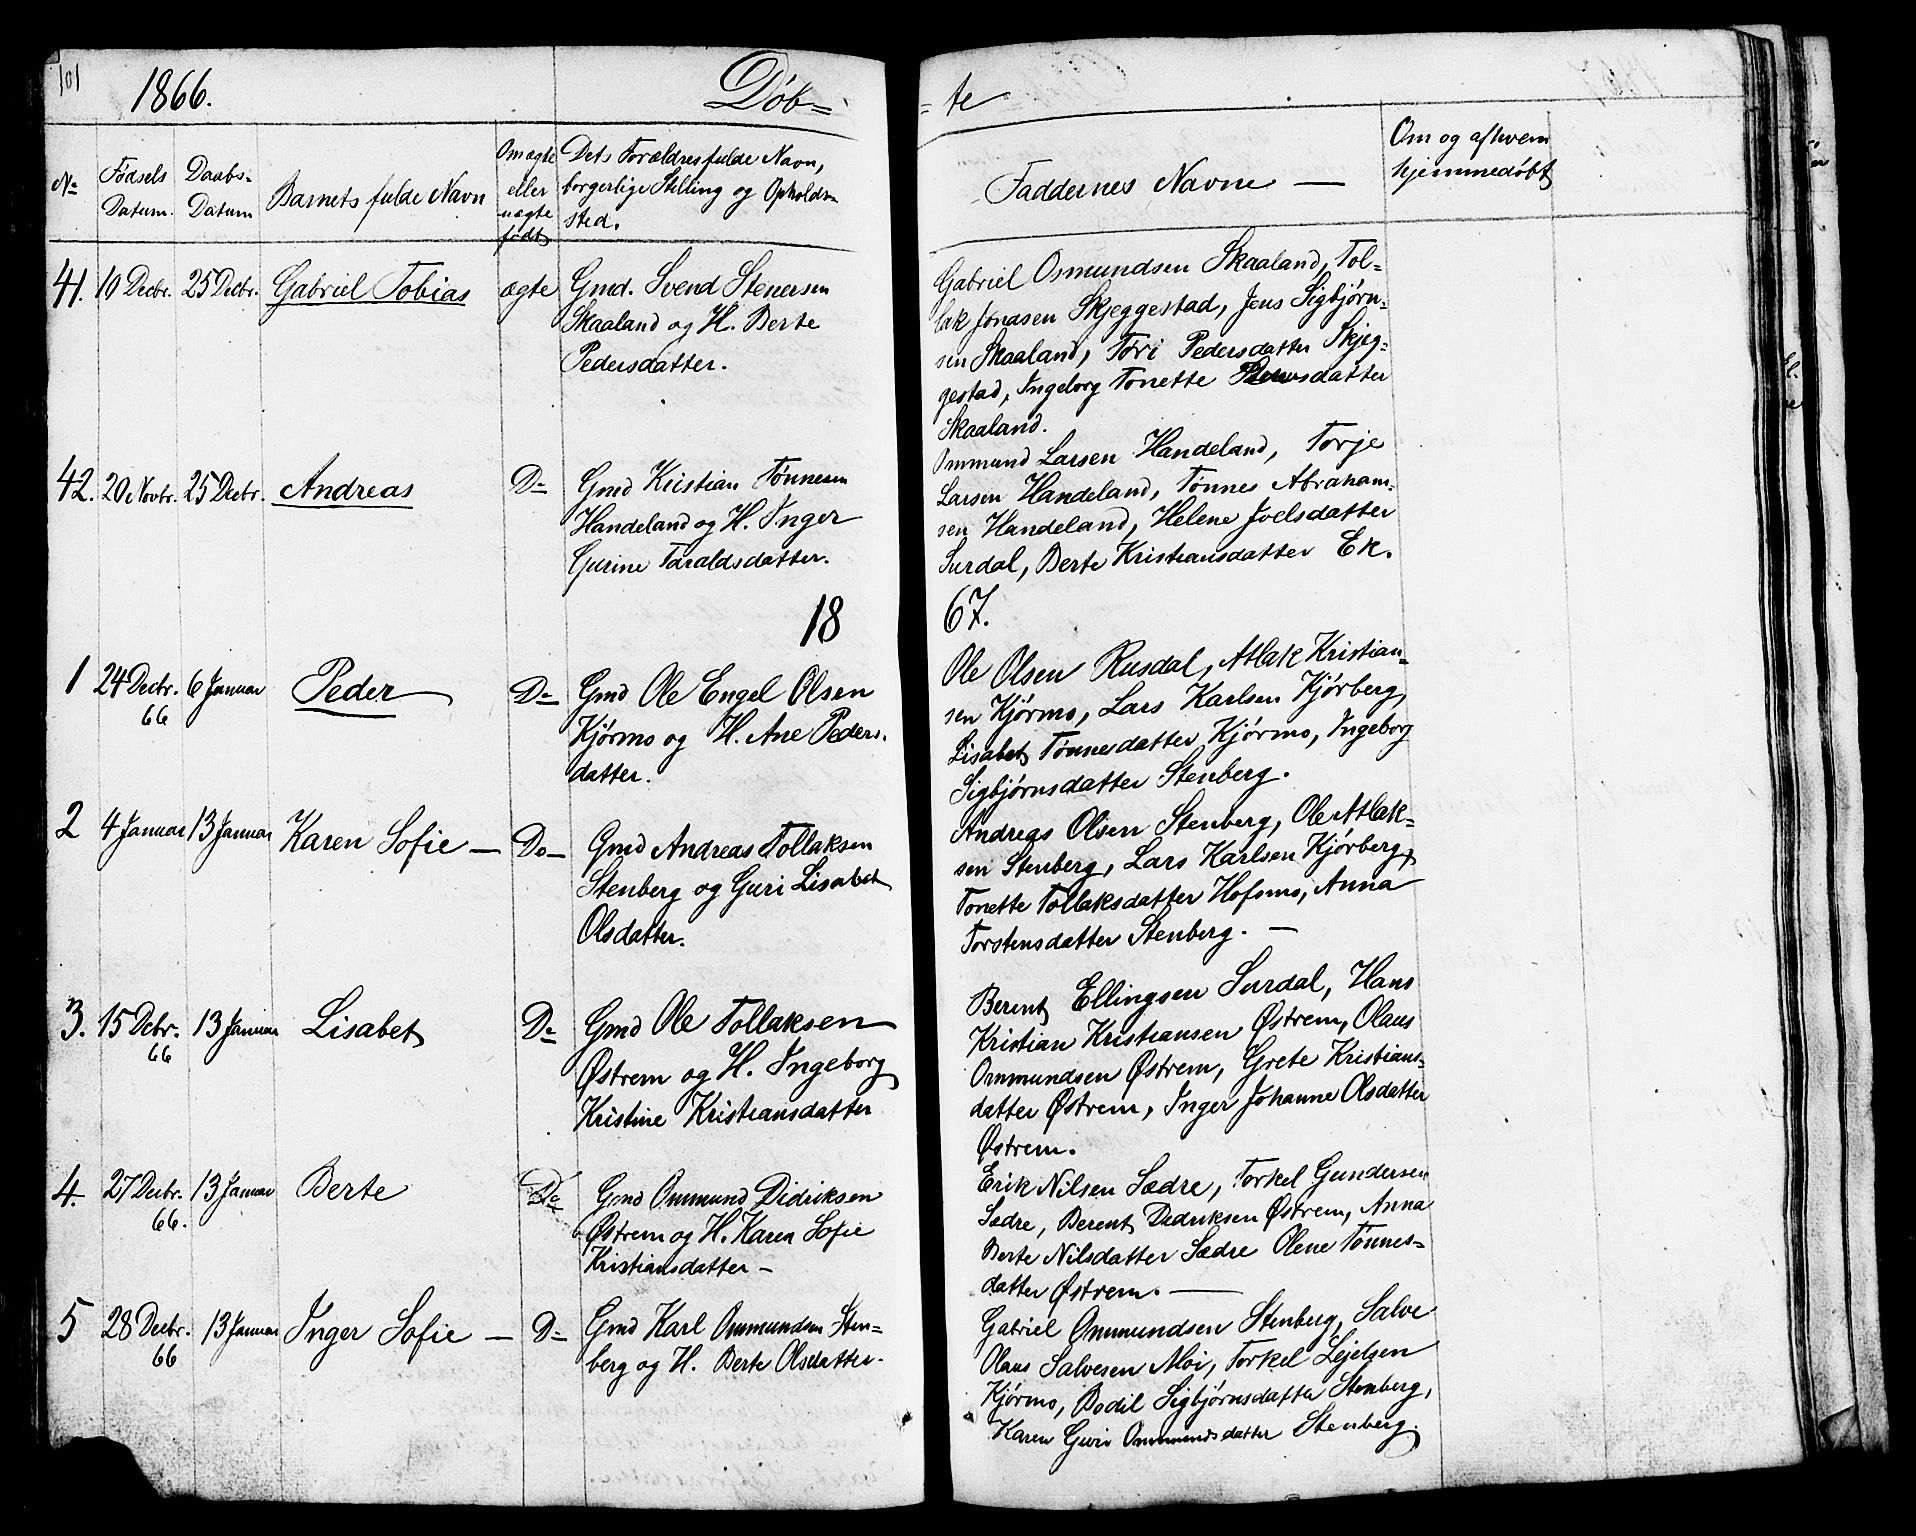 101
1866.
Døb=
= te
No
Fødsels
Datum.
Daabs-
Datum
Barnets fulde Navn
Om ægte
eller
uægte
født
Dets Forældres fulde Navn,
borgerlige Stilling og Opholds-
sted.
Faddernes Navne —
Om og af hvem
hjemmedøbt
41. 10 Decbr. 25 Decbr. Gabriel Tobias ægte
Gmd. Svend Stenersen
Skaaland og H. Berte
Pedersdatter.
Gabriel Osmundsen Skaaland, Tol=
lak Jonasen Skjeggestad, Jens Sigbjørn-
sen Skaaland, Tori Pedersdatter Skjeg-
gestad, Ingeborg Tonette datter
Skaaland.
42. 20 Novbr. 25 Decbr. Andreas Do
Gmd Kristian Tønnesen
Handeland og H. Inger
Gurine Taraldsdatter.
Ommund Larsen Handeland, Torje
Larsen Handeland, Tønnes Abraham-
sen Handeland, Helene Joelsdatter
Surdal, Berte Kristiansdatter Ek.
18
67.
1 24 Decbr. 66 6 Januar Peder Do
Gmd Ole Engel Olsen
Kjørmo og H. Ane Peders-
datter.
Ole Olsen Rusdal, Atlak Kristian-
sen Kjørmo, Lars Karlsen Kjørberg,
Lisabet Tønnesdatter Kjørmo, Ingeborg
Sigbjørnsdatter Stenberg.
2 4 Januar 13 Januar Karen Sofie — Do —
Gmd Andreas Tollaksen
Stenberg og Guri Lisabet
Olsdatter.
Andreas Olsen Stenberg, Ole Atlak=
sen Stenberg, Lars Karlsen Kjørberg,
Tonette Tollaksdatter Hofsmo, Anna
Torstensdatter Stenberg. —
3. 15 Dcbr. 66 13 Januar Lisabet Do
Gmd Ole Tollaksen
Østrem og H. Ingeborg
Kristine Kristiansdatter
Berent Ellingsen Surdal, Hans
Kristian Kristiansen Østrem, Olaus
Ommundsen Østrem, Grete Kristians-
datter Østrem, Inger Johanne Olsdatter
Østrem.
4. 27 Decbr. 66. 13 Januar Berte Do
Gmd Ommund Didriksen
Østrem og H. Karen Sofie
Kristiansdatter —
Erik Nilsen Sædre, Torkel Gundersen
Sædre, Berent Didriksen Østrem, Anna
Berte Nilsdatter Sædre Olene Tønnes-
datter Østrem. —
5 28 Decbr. 66 13 Januar Inger Sofie — Do
Gmd Karl Ommundsen Sten=
berg og H. Berte Olsdatter.
Gabriel Ommundsen Stenberg, Salve
Olaus Salvesen Moi, Torkel Lejelsen
Kjørmo, Bodil Sigbjørnsdatter Stenberg,
Karen Guri Ommundsdatter Stenberg.